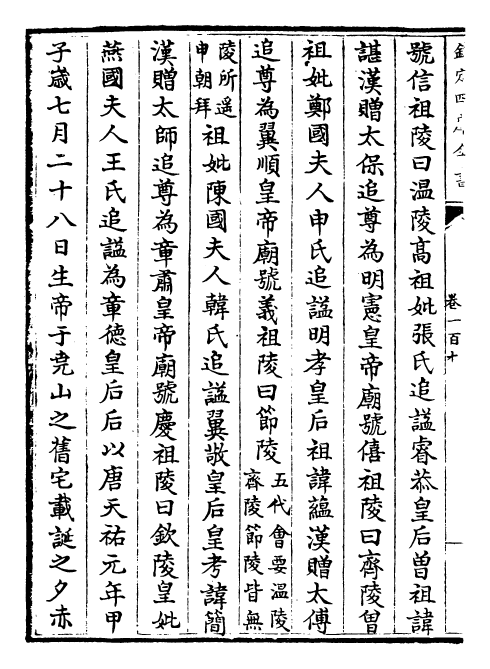 欽定四庫全書
卷一百十
號信祖陵曰温陵高祖妣張氏追諡睿恭皇后曾祖諱
諶漢贈太保追尊為明憲皇帝廟號僖祖陵曰齊陵曾
祖妣鄭國夫人申氏追諡明孝皇后祖諱蘊漢贈太傅
追尊為翼順皇帝廟號義祖陵曰節陵
五代會要温陵
齊陵節陵皆無
陵所遥
申朝拜
祖妣陳國夫人韓氏追諡翼敬皇后皇考諱簡
漢贈太師追尊為章肅皇帝廟號慶祖陵曰欽陵皇妣
燕國夫人王氏追諡為章德皇后后以唐天祐元年甲
子歲七月二十八日生帝于堯山之舊宅載誕之夕赤